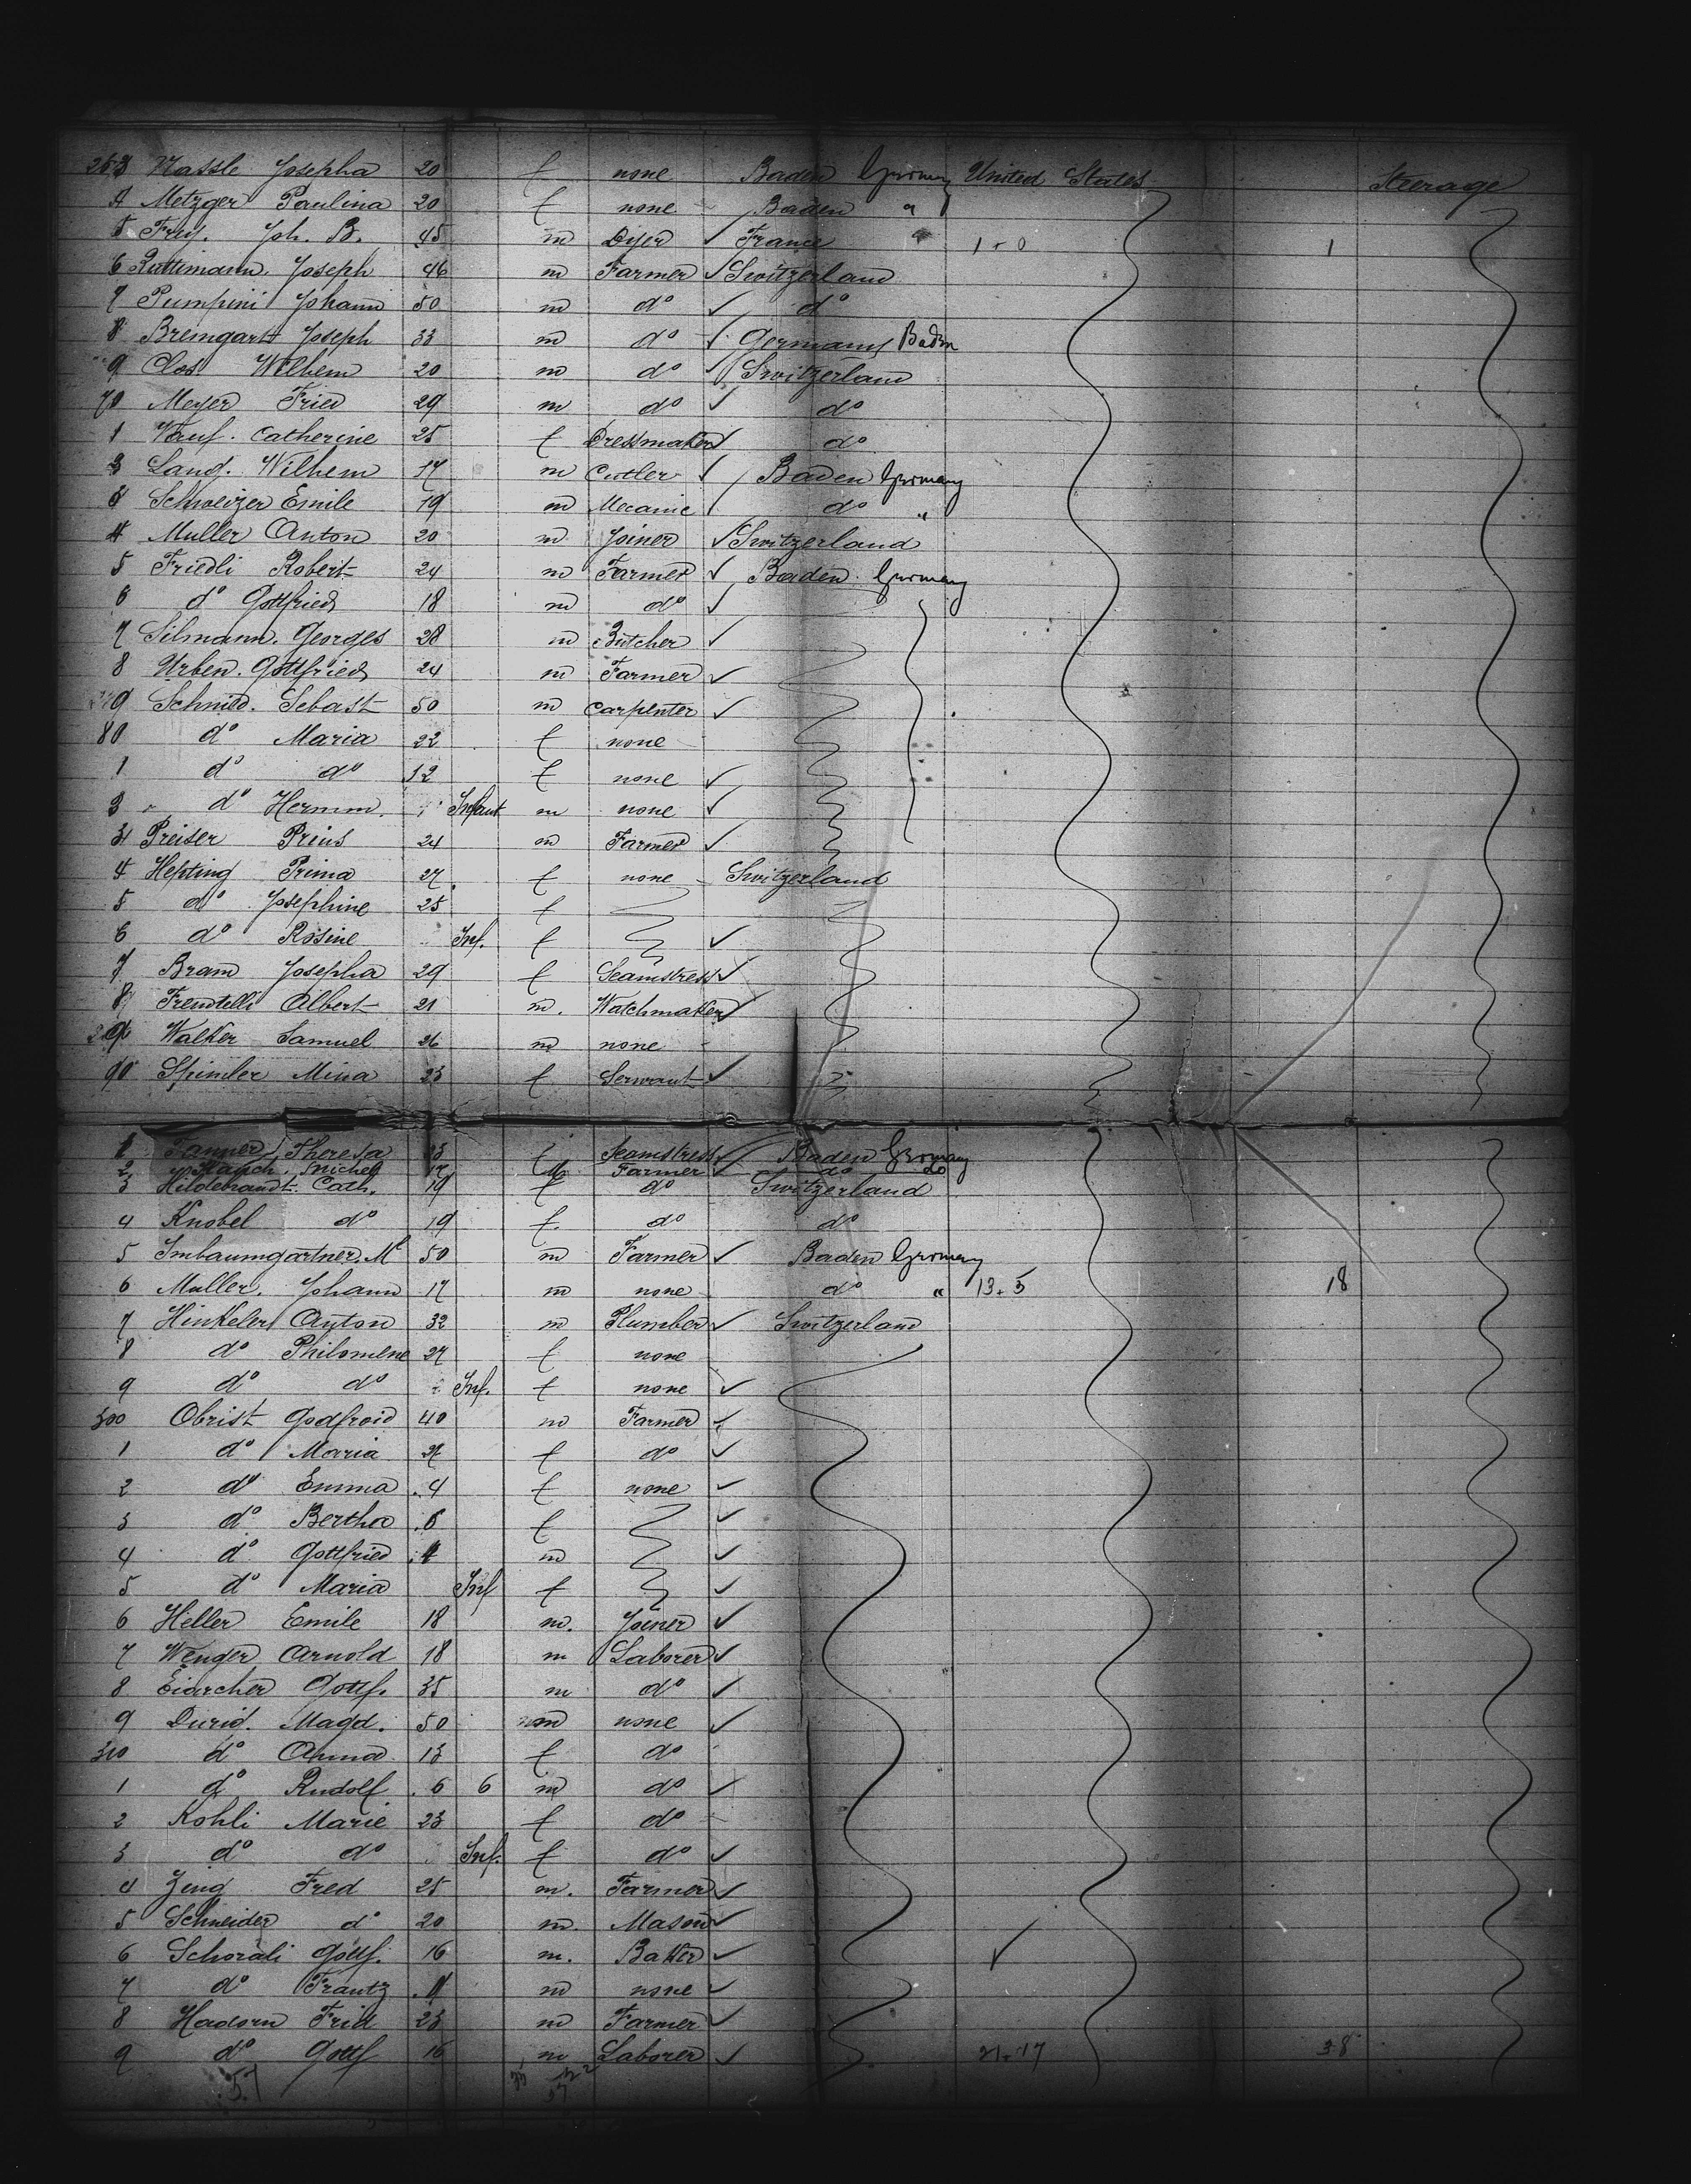 263 Massle Josepha 20 f none Baden Germany United States Steerage
4 Metzger Paulina 20 f none Baden "
5 Frey. Joh. B. 45 m Dyer ✓ France " 1 + 0 1
6 Ruttimann. Joseph 46 m Farmer ✓ Switzerland
7 Pumpini Johann 50 m do ✓ do
8 Bremgartt Joseph 33 m do ✓ Germany Baden
9 Clos Wilhem 20 m do ✓ Switzerland
70 Meyer Fried 29 m do ✓ do
1 Catherine 25 f Dressmaker ✓ do
2 Land. Wilhem 17 m Cutler ✓ Baden Germany
3 Schweizer Emile 19 m Mecanic ✓ do "
4 Muller Anton 20 m Joiner ✓ Switzerland
5 Friedli Robert 24 m Farmer ✓ Baden Germany
6 do Gottfried 18 m do ✓
7 Silmann. Georges 28 m Butcher ✓
8 Urben. Gottfried 24 m Farmer ✓
9 Schmid. Sebast 50 m Carpenter ✓
80 do Maria 22 f none
1 do do 12 f none ✓
2 do Hermm. Infant m none ✓
3 Preiser Preius 24 m Farmer ✓
4 Hepting Prima 27 f none Switzerland
5 do Josephine 25 f
6 do Rosine Inf. f ✓
7 Bram Josepha 29 f Seamstress ✓
8 Albert 21 m. Watchmaker ✓
9 Walker Samuel 26 m none
90 Spimler Mina 23 f Servant ✓
1 Tanner Theresa f Seamstress ✓ Baden Germany
2 Rauch. Michel 17 M Farmer ✓ do do
3 Hildebrandt. Cath. 19 f do Switzerland
4 Knobel do 19 f. do do
5 Imbaumgartner. Ml 50 m Farmer ✓ Baden Germany
6 Muller. Johann 17 m none do " 13 + 5 18
7 Hinkeler Anton 32 m Plumber ✓ Switzerland
8 do Philomene 27 f none
9 do do Inf. f none ✓
300 Obrist Godfroid 40 m Farmer ✓
1 do Maria f do ✓
2 do Emma .4 f none ✓
3 do Bertha f ✓
4 do Gottfried m ✓
5 do Maria Inf f ✓
6 Heller Emile 18 m. Joiner ✓
7 Wenger Arnold 18 m Laborer ✓
8 Eiarcher Gottf. 35 m do ✓
9 Durid. Magd. 50 m none ✓
310 do Anna 13 f do
1 do Rudolf .6 6 m do ✓
2 Kohli Marie 23 f do
3 do do Inf. f do ✓
4 Zing Fred 25 m. Farmer ✓
5 Schneider do 20 m. Mason ✓
6 Schorali Gottf. 16 m. Baker ✓ ✓
7 do Frantz m none ✓
8 Hadorn Frid 23 m Farmer ✓
9 do Gottf 16 m Laborer ✓ 21 + 17 38
57